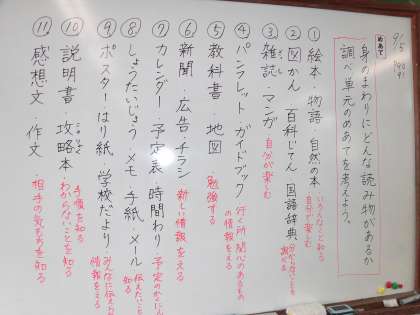 9/5
P90
91
めあて
身のまわりにどんな読み物があるか
調べ、単元のめあてを考えよう。
① 絵本・物語・自然の本 いろんなこと知る
自分が楽しむ
② 図かん 百科じてん 国語辞典 分からないことを
調べる
③ 雑誌・マンガ 自分が楽しむ
④ パンフレット ガイドブック 行く所・関心のあるもの
の情報をえる
⑤ 教科書・地図 勉強する
⑥ 新聞・広告・チラシ 新しい情報をえる
⑦ カレンダー・予定表 時間わり 予定のかくにん
⑧ しょうたいじょう・メモ 手紙・メール 伝えたいことを
知る
⑨ ポスターはり紙 学校だより みんなに伝えたい
情報をえる
⑩ 説明書・攻略本 手順を知る
わからないことを知る
⑪ 感想文・作文 相手の気もちを知る